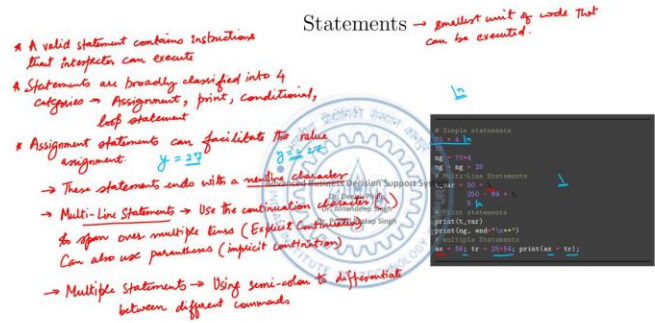 Statements → smallest unit of code that
can be executed.
* A valid statement contains instructions
that interpreter can execute
* Statements are broadly classified into 4
categories → Assignment, print, conditional,
loop statement
* Assignment statements can facilitate the value
assignment. y = 27 y = 27
→ These statements ends with a newline character
→ Multi-Line Statements → Use the continuation character (\)
to span over multiple lines (Explicit Continuation)
Can also use parentheses (implicit continuation)
→ Multiple Statements → Using semi-colon to differentiate
between different commands
Advanced Business Decision Support Sys
Dr. Amandeep Singh
Singh
\n
# Simple statements
70 + 4 \n
70
ng = 70+4
ng = ng + 20
# Multi-Line Statements
t_var = 50 + \
250 - 89 + \
5 \n
# Print statements
print(t_var)
print(ng, end="\n**")
# multiple Statements
ax = 56; tr = 25+54; print(ax + tr);